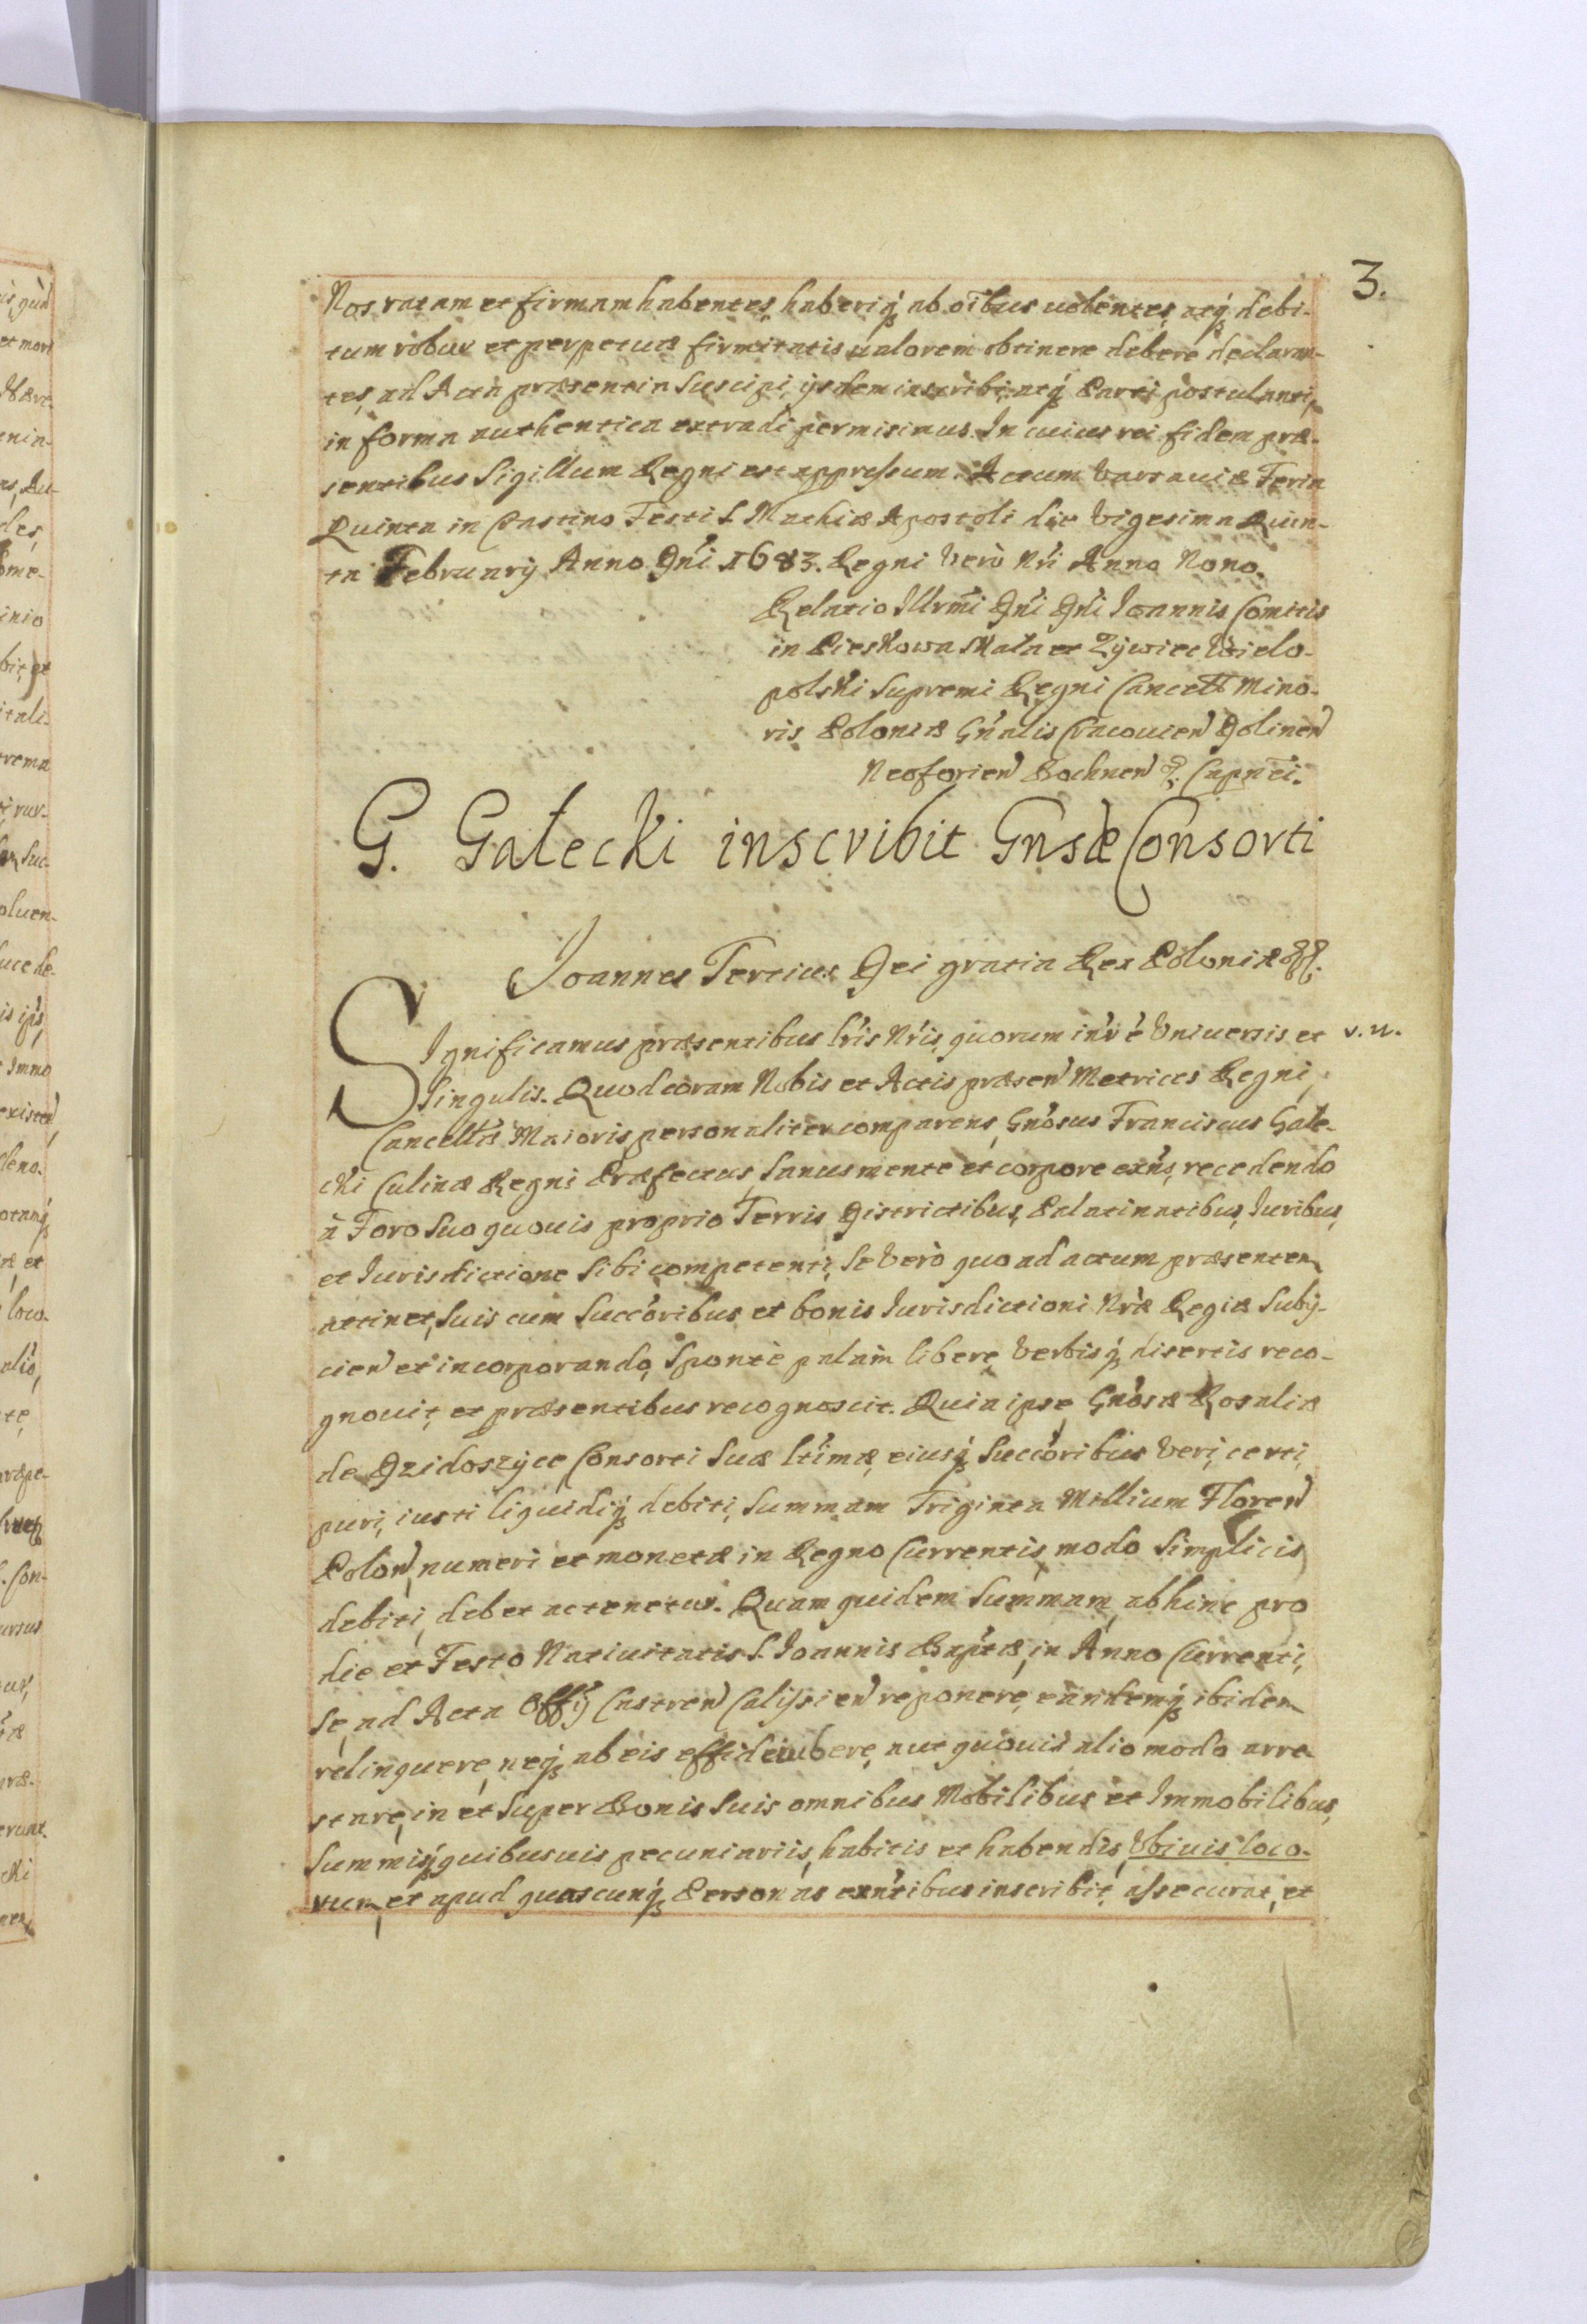 3.
Nos ratam et firmam habentes, haberiq́ꝫ ab oı̃bus uolentes, atq́ꝫ debi-
tum robur et perpetuæ firmitatis ualorem obtinere debere declaran-
tes, ad Acta præsentia suscipi, ijsdem inscribi, atq́ꝫ Parti postulanti,
in forma authentica extradi permisimus. In cuius rei fidem præ-
sentibus Sigillum Regni est appressum. Actum Varsauiæ Feria
Quinta in Crastino Festi S. Mathiæ Apostoli die Vigesima Quin-
ta February Anno Dñi 1683. Regni Verò Nrı̃ Anno Nono.
Relatio Illrmı̃ Dñi Dñi Ioannis Comitis
in Pieskowa Skała et Zÿwiec Wielo-
polski Supremi Regni Cancell Mino-
ris Poloniæ Gñalis Cracouien Dolinen
Neoforien Bochnen &. Capnei.
G. Gałecki inscribit Gnsæ Consorti
Ioannes Tertius Dei gratia Rex Poloniæ &&.
SIgnificamus præsentibus lrı̃s Nrı̃s, quorum inr̃é Vniuersis et
v. n.
Singulis. Quod coram Nobis et Actis præsen Metrices Regni,
Cancellr̃ Maioris personaliter comparens, Gñosus Franciscus Gałe-
cki Culinæ Regni Præfectus, Sanus mente et corpore exñs, recedendo
à Foro Suo quouis proprio Terris, Districtibus, Palatinatibus, Iuribus,
et Iurisdictione Sibi competenti, Se Verò quo ad actum præsentem
attinet, Suis cum Succr̃oribus et bonis Iurisdictioni Nrã̃ Regiæ Subÿ-
cien et incorporando, Spontè palam libere, Verbisq́ꝫ disertis reco-
gnouit, et præsentibus recognoscit. Quia ipse, Gñosæ Rosaliæ
de Dzidoszÿce Consorti Suæ ltı̃mæ, eiusq́ꝫ Succõribus Veri, certi,
puri, iusti liquidiq́ꝫ debiti, Summam Triginta Millium Floren
Polon, numeri et monetæ in Regno Currentis, modo Simplicis
debiti, debet ac tenetur. Quam quidem Summam, abhinc pro
die et Festo Natiuitatis S. Ioannis Baptæ, in Anno Currenti,
Se, ad Acta Offÿ Castren Calissien reponere, eandemq́ꝫ ibidem
relinquere, neq́ꝫ ab eis effideiubere, aut quouis alio modo arre-
stare, in et Super Bonis Suis omnibus Mobilibus et Immobilibus,
Summisq́ꝫ quibusuis pecuniariis, habitis et habendis, Vbiuis loco-
rum, et apud quascunq́ꝫ Personas exñtibus inscribit, assecurat, et